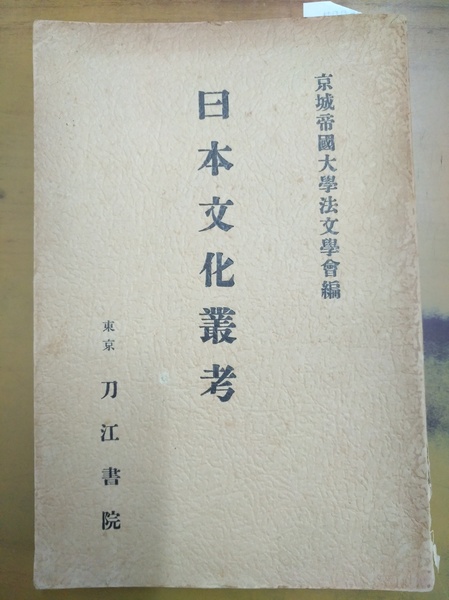 京城帝國大學法文學會編
日本文化叢考
東京 刀江書院